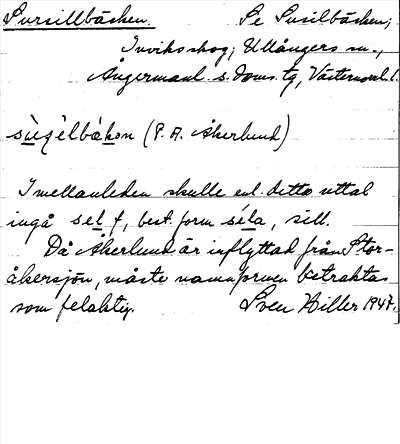 Sursillbäcken. Se Susilbäcken;
Inviksskog; Ullångers sn.,
Ångermanl. s. doms. tg, Västernorrl. l.
(P. A. Åkerlund)
I mellanleden skulle enl. detta uttal
ingå sel f, best. form séla, sill.
Då Åkerlund är inflyttad från Stor-
åkersjön, måste namnformen betraktas
som felaktig. Sven Hiller 1947.